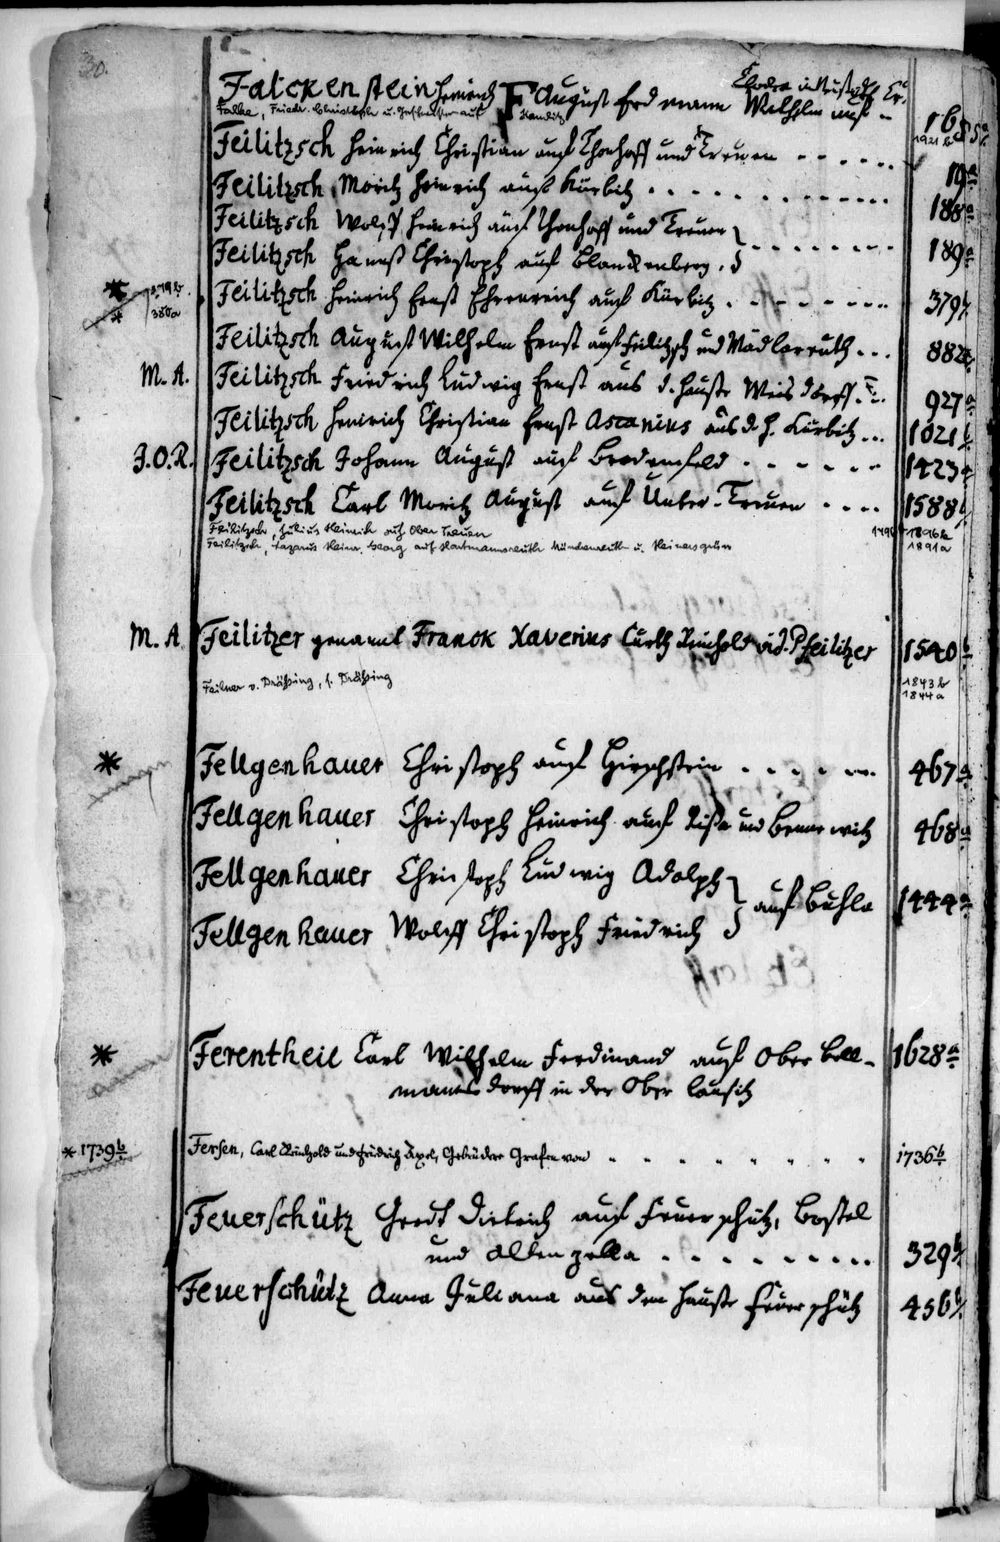 30.
Falckenstein Heinrich August Erdmann Wilhelm auf
Falke, Friedr. Christoph u. auf 1685a
1921 b
Feilitzsch Heinrich Christian auf Thonhoff und Treuen . . . . . . 19a
Feilitzsch Moritz Heinrich auf Kürbitz . . . . . . 188a
Feilitzsch Wolff Heinrich auf Thonhoff und Treuen
Feilitzsch Hannß Christoph auf Blanckenberg . } . . . . . . 189a
* 379b. 380a Feilitzsch Heinrich Ernst Ehrenreich auf Kürbitz . . . . . . 379b
Feilitzsch August Wilhelm Ernst auf Feilitzsch und Mädlerreuth . . . 882
M. A. Feilitzsch Friedrich Ludwig Ernst aus d. Hauße Weisdorff . . 927a
Feilitzsch Heinrich Christian Ernst Ascanius aus d. H. Kürbitz . . . 1021b
J.O.R. Feilitzsch Johann August auf Bredenfeld . . . . . . 1423a
Feilitzsch Carl Moritz August auf Unter-Treuen . . . . 1588b
Feilitzsch, Julius Heinrich auf Ober Treuen 1896b
Feilitzsch, Lazarus Heinr. Georg auf Hartmannsreuth Münchenreuth u. Heinersgrün 1891a
M. A. Feilitzer genannt Franck Xaverius Curth Reinhold vid. Pfeilitzer 1540b
Feilner v. Dräßing, s. Dräßing 1843b
1844a
* Fellgenhauer Christoph auf Hirschstein . . . . . . 467a
Fellgenhauer Christoph Heinrich auf Rißa und Bennewitz 468a
Fellgenhauer Christoph Ludwig Adolph
Fellgenhauer Wolff Christoph Friedrich } auf Buhla 1444a
* Ferentheil Carl Wilhelm Ferdinand auf Ober Bell- 1628a
mannsdorff in der Ober Lausitz
* 1739b Fersen, Carl Reinhold und Fridrich Axel, Gebrüdere Grafen von . . . . . . 1736b
Feuerschütz Gerdt Dietrich auf Feuerschütz, Bostel
und Altenzella . . . . . . 329b
Feuerschütz Anna Juliana aus dem Hauße Feuerschütz 456b